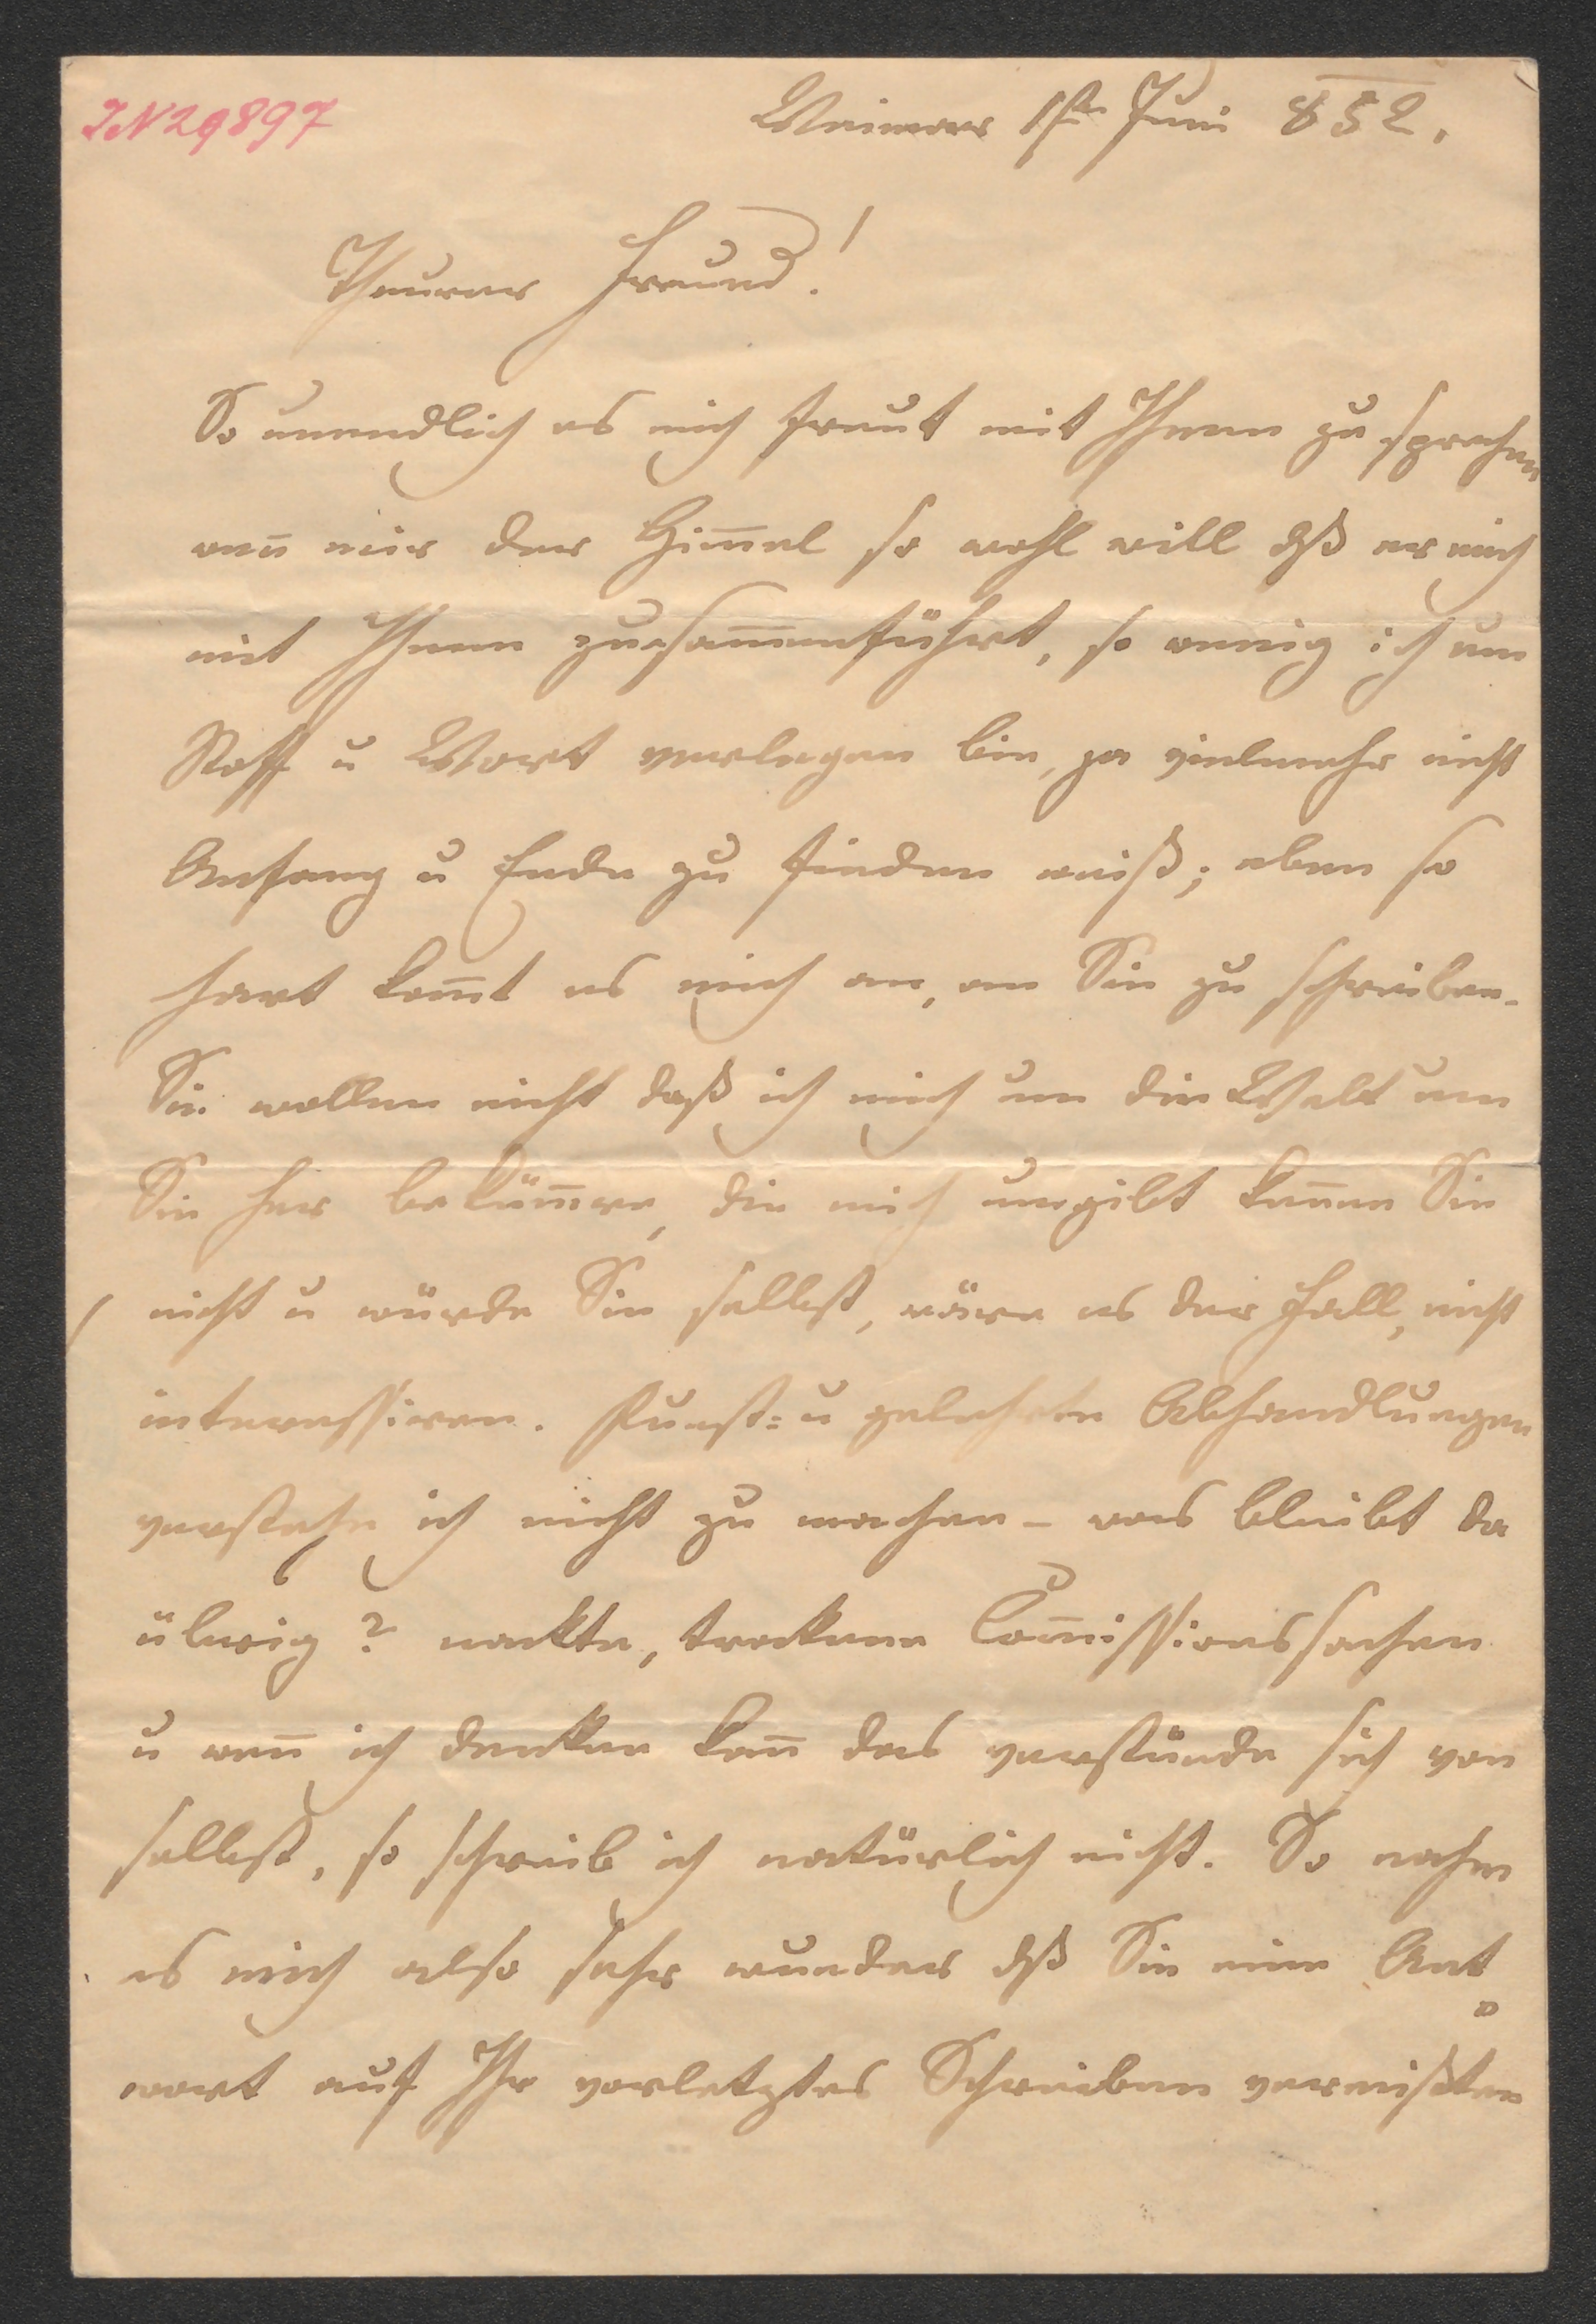 IN 29897
Weimar 1ste Juni 852.
Theurer Freund!
So unendlich es mich freut mit Ihnen zu sprechen
wen̄ mir der Him̄el so wohl will dß er mich
mit Ihnen zusam̄enführt, so wenig ich um
Stoff u Wort verlegen bin, ja vielmehr nicht
Anfang u Ende zu finden weiß; eben so
hart kom̄t es mich an, an Sie zu schreiben.
Sie wollen nicht daß ich mich um die Welt um
Sie her beküm̄re, die mich umgibt kennen Sie
nicht u würde Sie selbst, wäre es der Fall, nicht
interessiren. Kunst= u gelehrte Abhandlungen
verstehe ich nicht zu machen – was bleibt da
übrig? nackte, trockene Com̄issionssachen
u wen̄ ich denken kan̄ das verstünde sich von
selbst, so schreib ich natürlich nicht. So nahm
es mich also sehr wunder dß Sie eine Ant=
wort auf Ihr vorletztes Schreiben vermißten